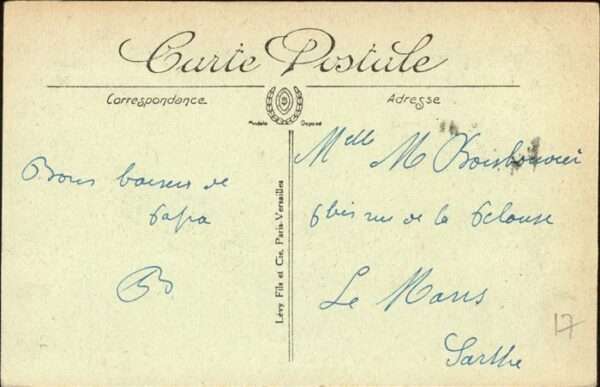 Carte Postale
Correspondance
Adresse
Modèle Déposé
Bons baisers de
Papa
Lévy Fils et Cie, Paris-Versailles
Mlle M
6 bis rue de la Pelouse
Le Mans
Sarthe
17